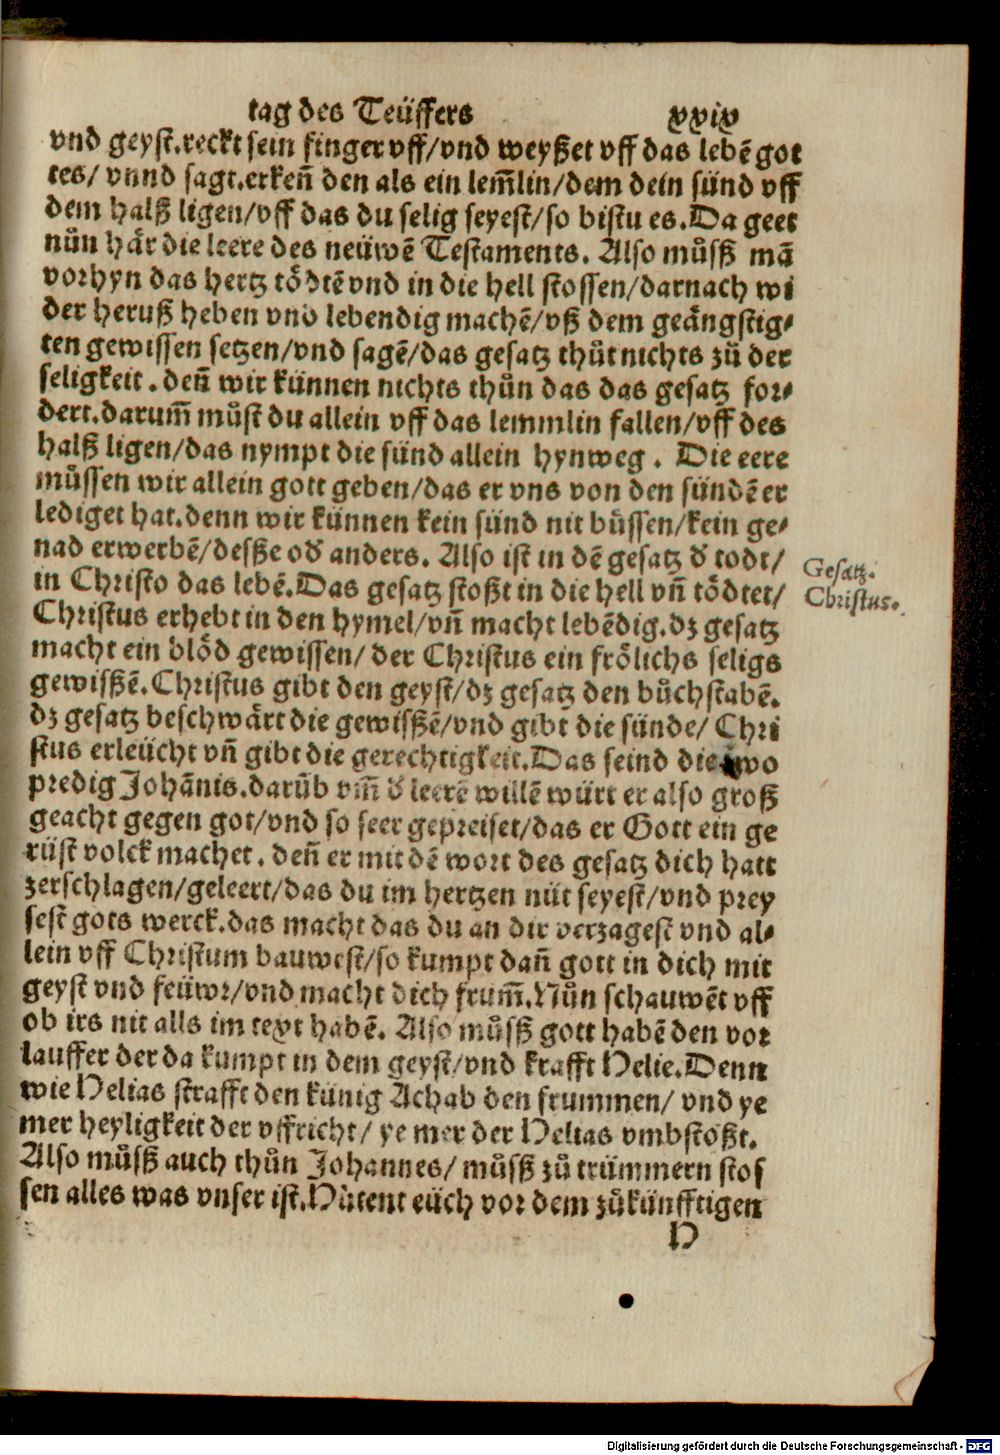 tag des Teüffers xxix
vnd geyst.reckt sein finger vff/vnd weyßet vff das lebē got
tes/ vnnd sagt.erkeñ den als ein lem̃lin/dem dein sünd vff
dem halß ligen/vff das du selig seyest/so bistu es.Da geet
nůn hår die leere des neüwē Testaments. Also můsß mā
vorhyn das hertz tödtē vnd in die hell stossen/darnach wi
der heruß heben vnd lebendig machē/vß dem geångstig⸗
ten gewissen setzen/vnd sagē/das gesatz thůt nichts zů der
seligkeit . deñ wir künnen nichts thůn das das gesatz for⸗
dert.darum̃ můst du allein vff das lemmlin fallen/vff des
halß ligen/das nympt die sünd allein hynweg . Die eere
můssen wir allein gott geben/das er vns von den sündē er
lediget hat.denn wir künnen kein sünd nit bůssen/kein ge⸗
nad erwerbē/desße od' anders. Also ist in dē gesatz d' todt/
in Christo das lebē.Das gesatz stoßt in die hell vñ tödtet/
Gesatz.
Christus.
Christus erhebt in den hymel/vñ macht lebēdig.dz gesatz
macht ein blöd gewissen/ der Christus ein frölichs seligs
gewisßē.Christus gibt den geyst/dz gesatz den bůchstabē.
dz gesatz beschwårt die gewisßē/vnd gibt die sünde/ Chri
stus erleücht vñ gibt die gerechtigkeit.Das seind die zwo
predig Johānis.darüb vm̃ d' leere willē würt er also groß
geacht gegen got/vnd so seer gepreiset/das er Gott ein ge
rüst volck machet . deñ er mit dē wort des gesatz dich hatt
zerschlagen/geleert/das du im hertzen nüt seyest/vnd prey
sest gots werck.das macht das du an dir verzagest vnd al⸗
lein vff Christum bauwest/so kumpt dañ gott in dich mit
geyst vnd feüwr/vnd macht dich frum̃.Nůn schauwēt vff
ob irs nit alls im text habē. Also můsß gott habē den vor
lauffer der da kumpt in dem geyst/vnd krafft Helie.Denn
wie Helias strafft den künig Achab den frummen/ vnd ye
mer heyligkeit der vffricht/ ye mer der Helias vmbstoßt.
Also můsß auch thůn Johannes/ můsß zů trümmern stos
sen alles was vnser ist.Hůtent eüch vor dem zůkünfftigen
H
Digitalisierung gefördert durch die Deutsche Forschungsgemeinschaft - DFG